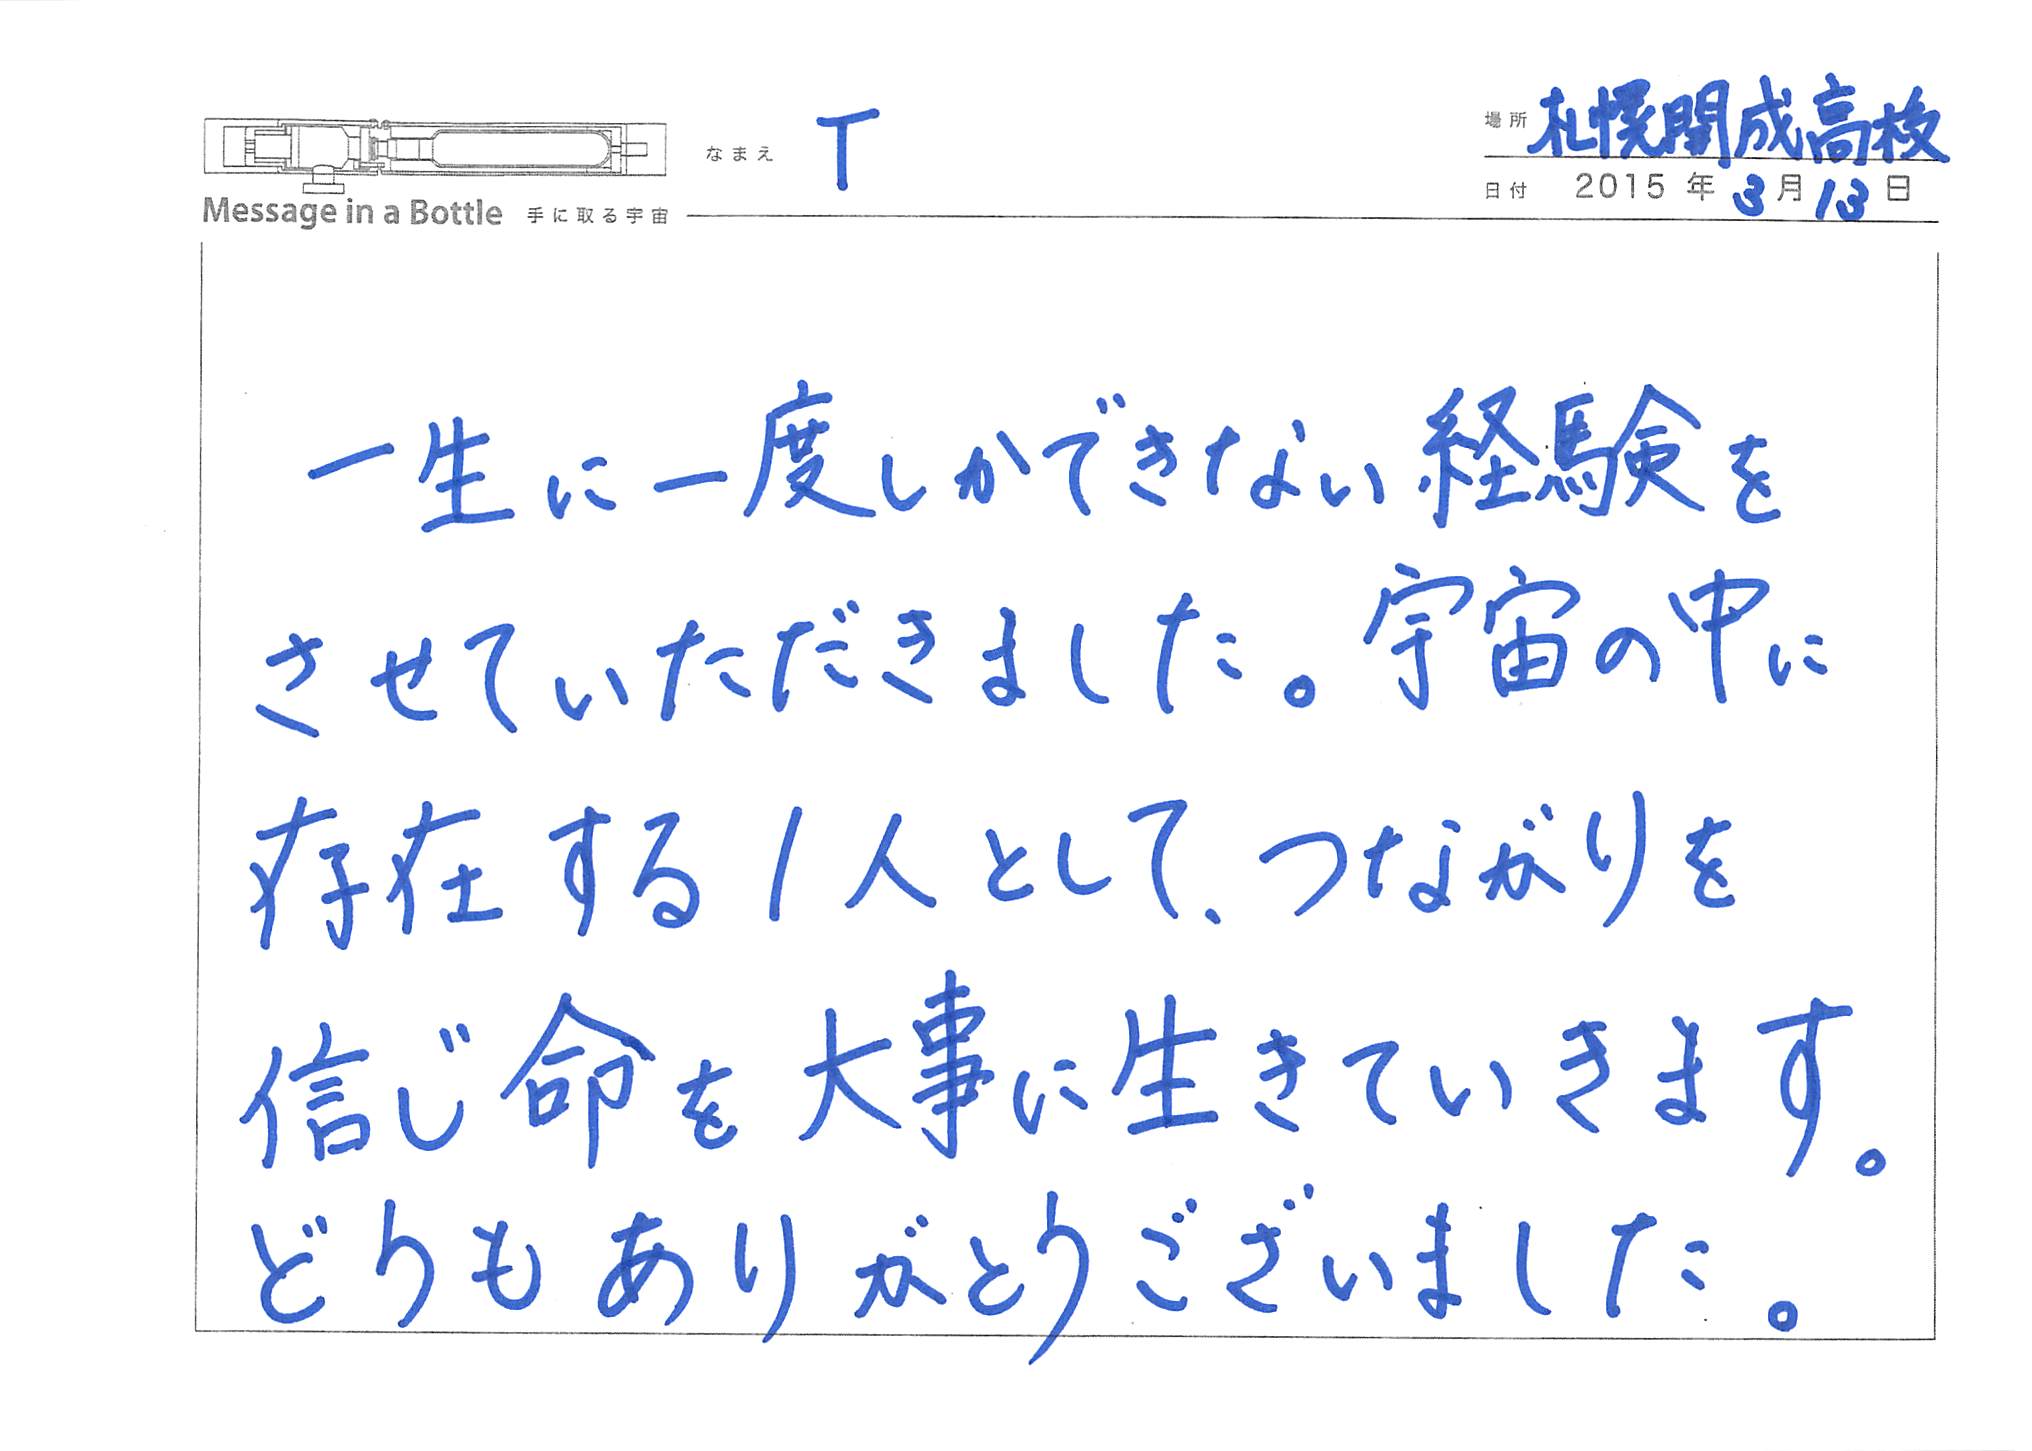 なまえ T
場所 札幌開成高校
日付 2015 年 3 月 13 日
Message in a Bottle 手に取る宇宙
一生に一度しかできない経験を
させていただきました。宇宙の中に
存在する1人として、つながりを
信じ命を大事に生きていきます。
どうもありがとうございました。